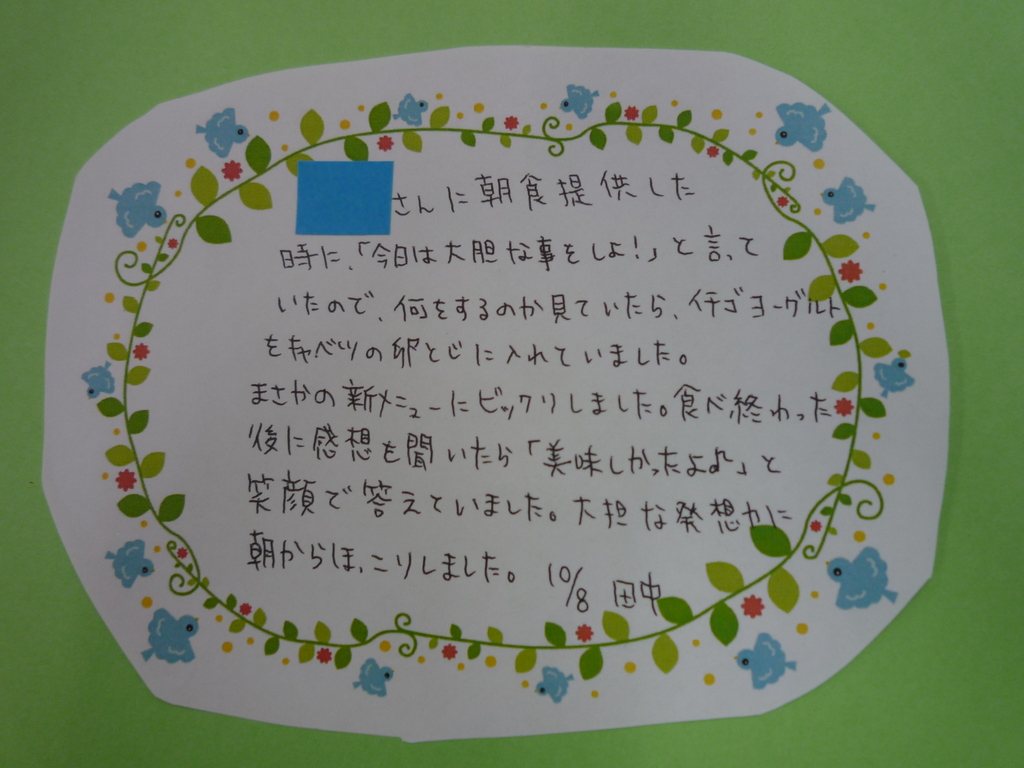 さんに朝食提供した
時に、「今日は大胆な事をしよ!」と言って
いたので、何をするのか見ていたら、イチゴヨーグルト
をキャベツの卵とじに入れていました。
まさかの新メニューにビックリしました。食べ終わった
後に感想を聞いたら「美味しかったよ♪」と
笑顔で答えていました。大担な発想力に
朝からほっこりしました。 10/8 田中